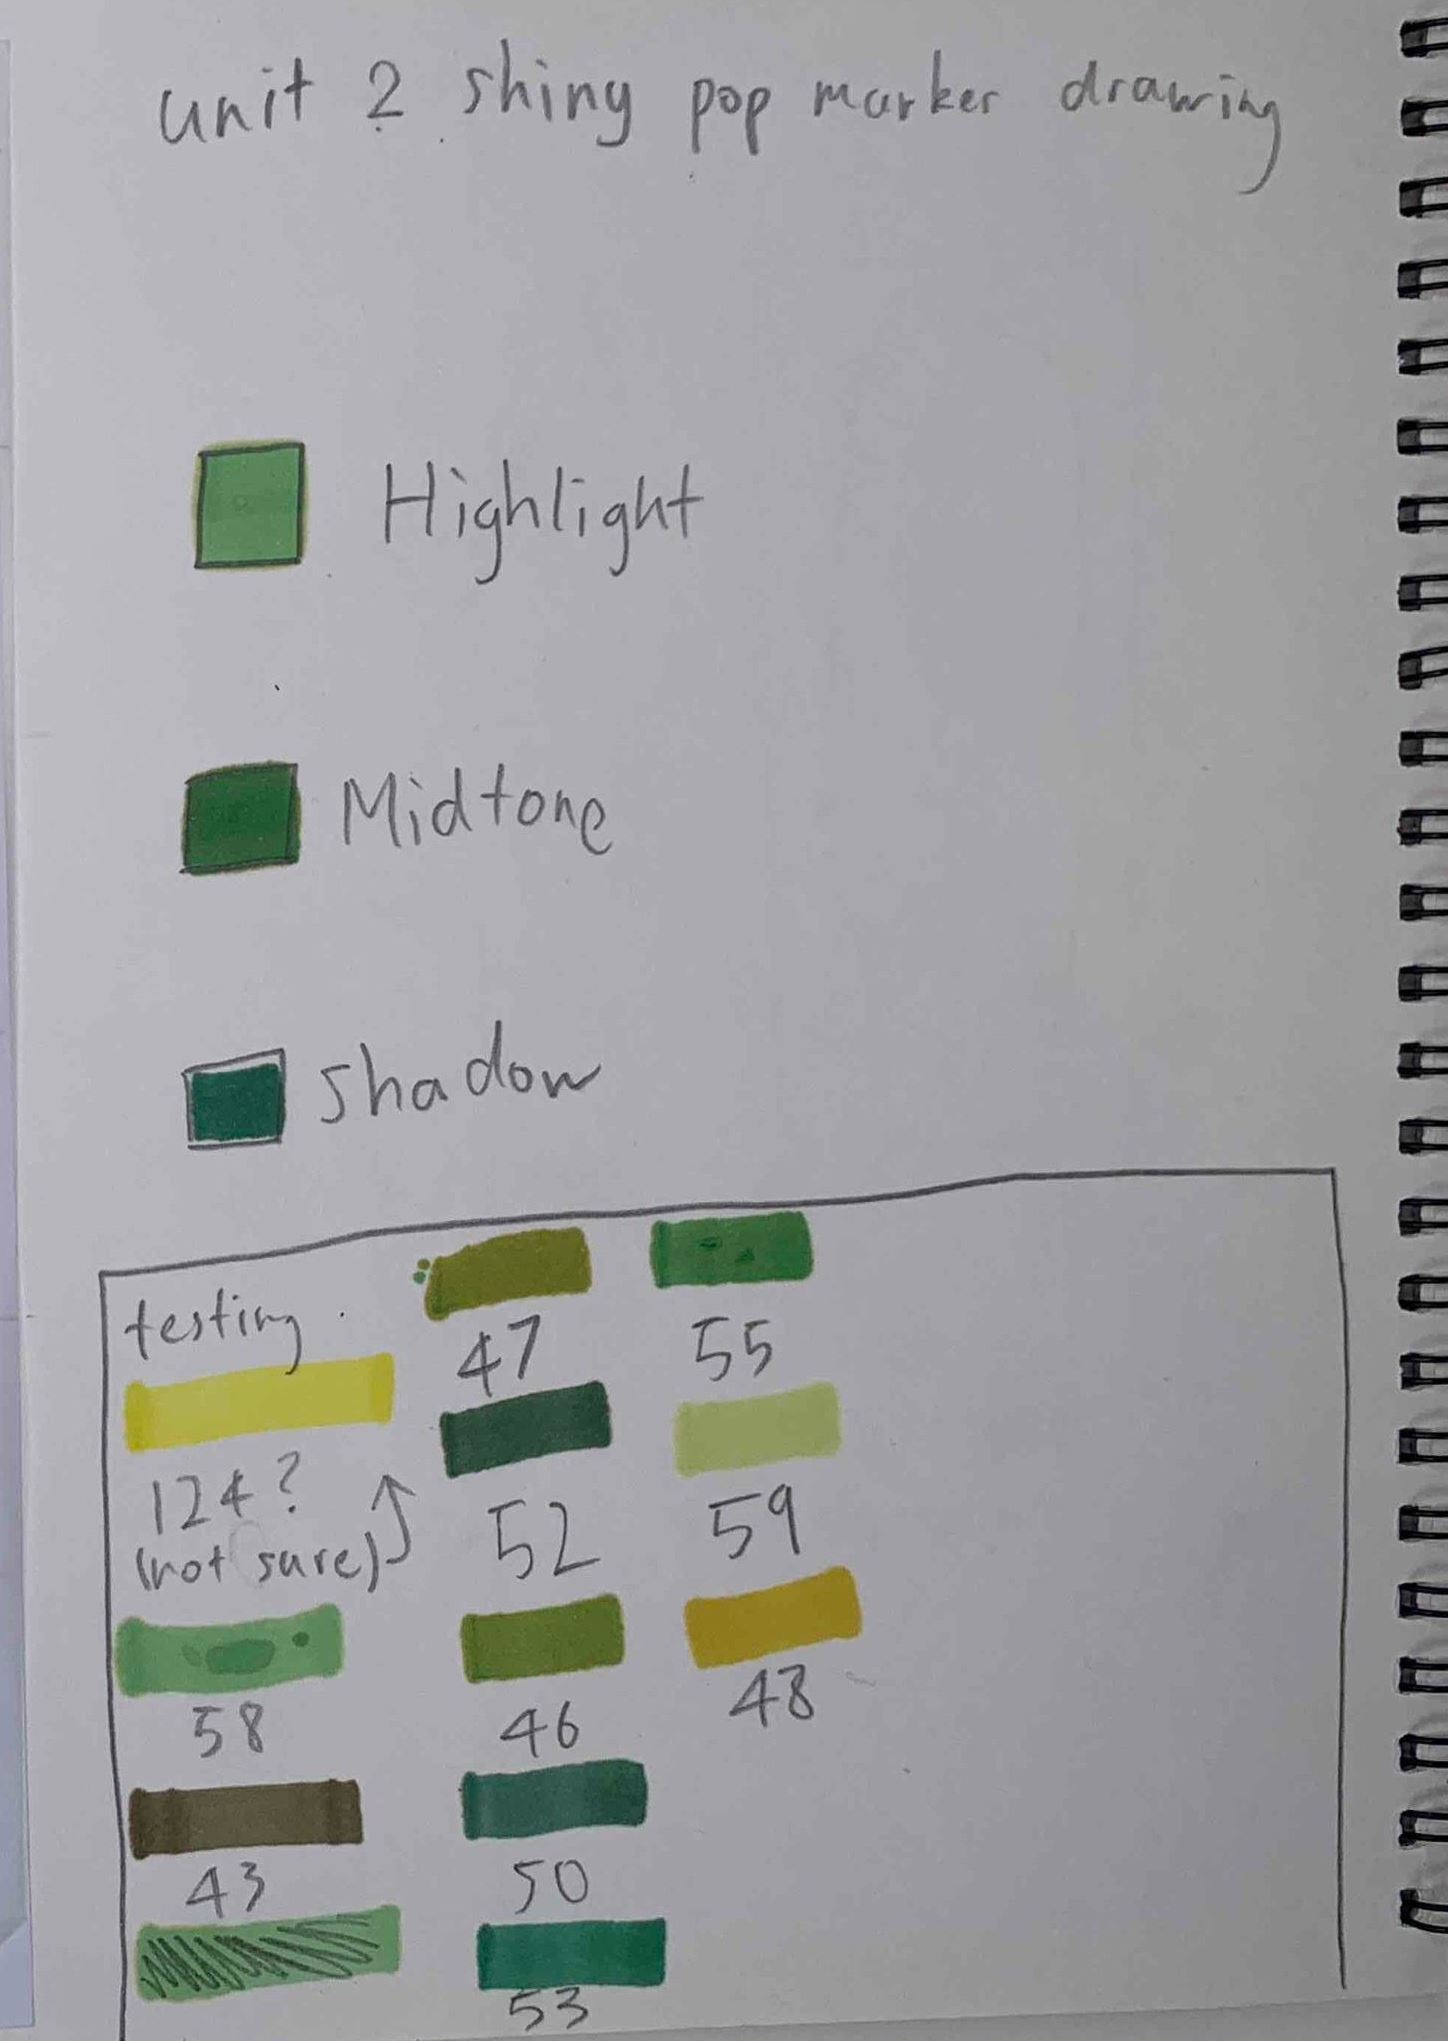 unit 2 shiny pop marker drawing
Highlight
Midtone
shadow
testing
47
55
124?
(not sure)
52
59
58
46
48
43
50
53